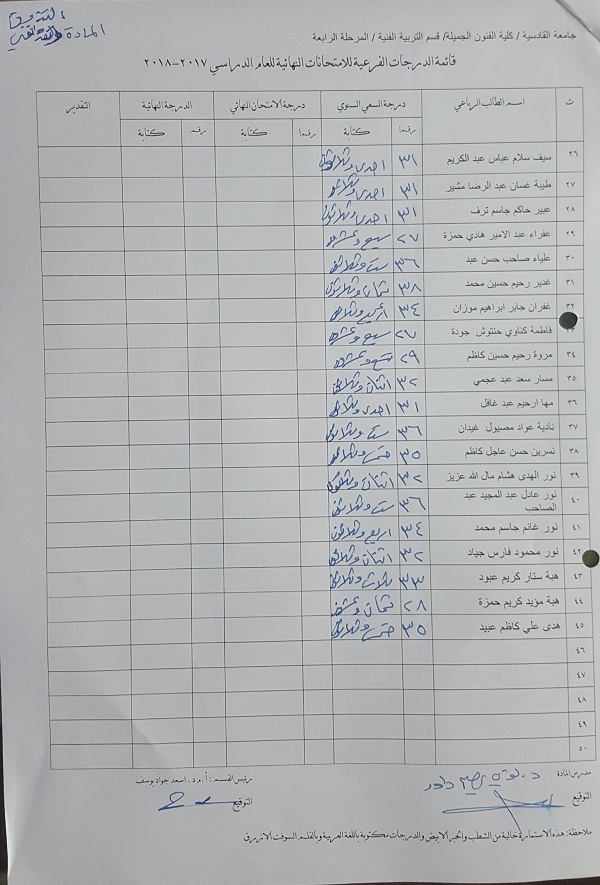 التذوق
المادة والنقد الفني
جامعة القادسية / كلية الفنون الجميلة/ قسم التربية الفنية / المرحلة الرابعة
قائمة الدرجات الفرعية للامتحانات النهائية للعام الدراسي ٢٠١٧-٢٠١٨
ت اسم الطالب الرباعي درجة السعي السنوي درجة الامتحان النهائي الدرجة النهائية التقدير
رقما كتابة رقما كتابة رقما كتابة
٢٦ سيف سلام عباس عبد الكريم ٣١ احدى وثلاثون
٢٧ طيبة غسان عبد الرضا مشير ٣١ احدى وثلاثون
٢٨ عبير حاكم جاسم ترف ٣١ احدى وثلاثون
٢٩ عفراء عبد الامير هادي حمزة ٢٧ سبع وعشرون
٣٠ علياء صاحب حسن عبد ٣٦ ست وثلاثون
٣١ غدير رحيم حسين محمد ٣٨ ثمان وثلاثون
٣٢ غفران جابر ابراهيم موزان ٣٤ اربع وثلاثون
٣٣ فاطمة كناوي حنتوش جودة ٢٧ سبع وعشرون
٣٤ مروة رحيم حسين كاظم ٢٩ تسع وعشرون
٣٥ مسار سعد عبد عجمي ٣٢ اثنان وثلاثون
٣٦ مها ارحيم عبد غافل ٣١ احدى وثلاثون
٣٧ نادية عواد مصيول غيدان ٣٦ ست وثلاثون
٣٨ نسرين حسن عاجل كاظم ٣٥ خمس وثلاثون
٣٩ نور الهدى هشام مال الله عزيز ٣٢ اثنان وثلاثون
٤٠ نور عادل عبد المجيد عبد الصاحب ٣٦ ست وثلاثون
٤١ نور غانم جاسم محمد ٣٤ اربع وثلاثون
٤٢ نور محمود فارس جياد ٣٢ اثنان وثلاثون
٤٣ هبة ستار كريم عبود ٣٣ ثلاث وثلاثون
٤٤ هبة مؤيد كريم حمزة ٢٨ ثمان وعشرون
٤٥ هدى علي كاظم عبيد ٣٥ خمس وثلاثون
٤٦
٤٧
٤٨
٤٩
٥٠
مدرس المادة د. رئيس القسم : أ.م.د. اسعد جواد يوسف
التوقيع التوقيع
ملاحظة: هذه الاستمارة خالية من الشطب والحبر الابيض والدرجات مكتوبة باللغة العربية وبالقلم السوفت الازرق